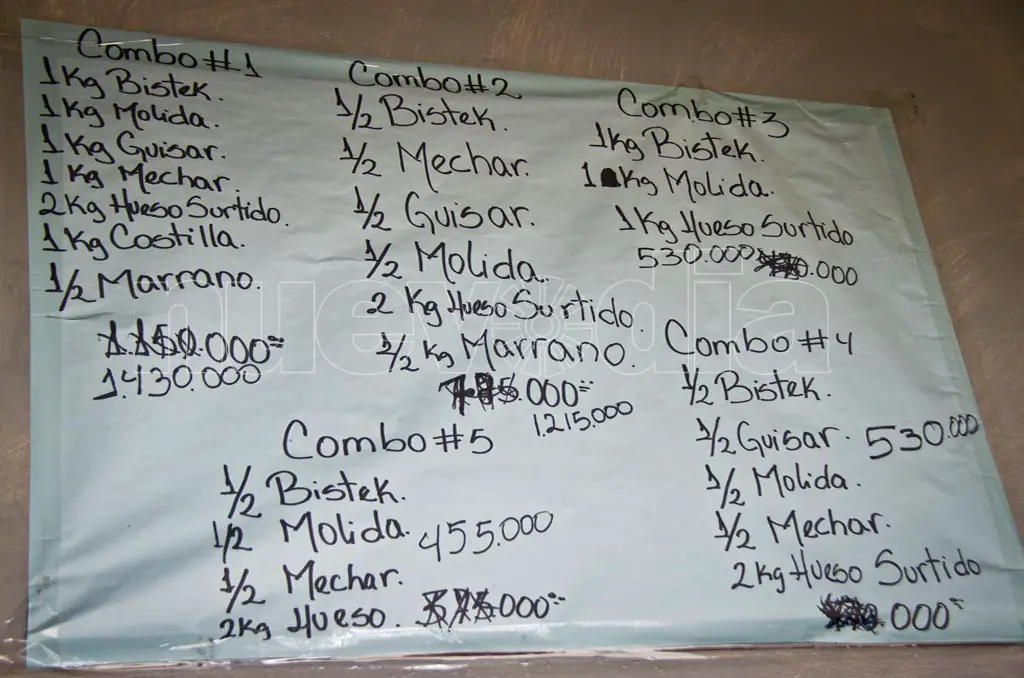 Combo#1
1Kg Bistek.
1Kg Molida.
1Kg Guisar.
1Kg Mechar.
2Kg Hueso Surtido.
1Kg Costilla.
1/2 Marrano.
1.150.000=
1.430.000
Combo#2
1/2 Bistek.
1/2 Mechar.
1/2 Guisar.
1/2 Molida.
2 Kg Hueso Surtido.
1/2 kg Marrano.
.000=
1.215.000
Combo#3
1kg Bistek.
1 Kg Molida.
1Kg Hueso Surtido
530.000 .000
Combo#4
1/2 Bistek.
1/2 Guisar. 530.000
1/2 Molida.
1/2 Mechar.
2Kg Hueso Surtido
.000=
Combo#5
1/2 Bistek.
1/2 Molida. 455.000
1/2 Mechar.
2Kg Hueso. .000=
nuevo dia